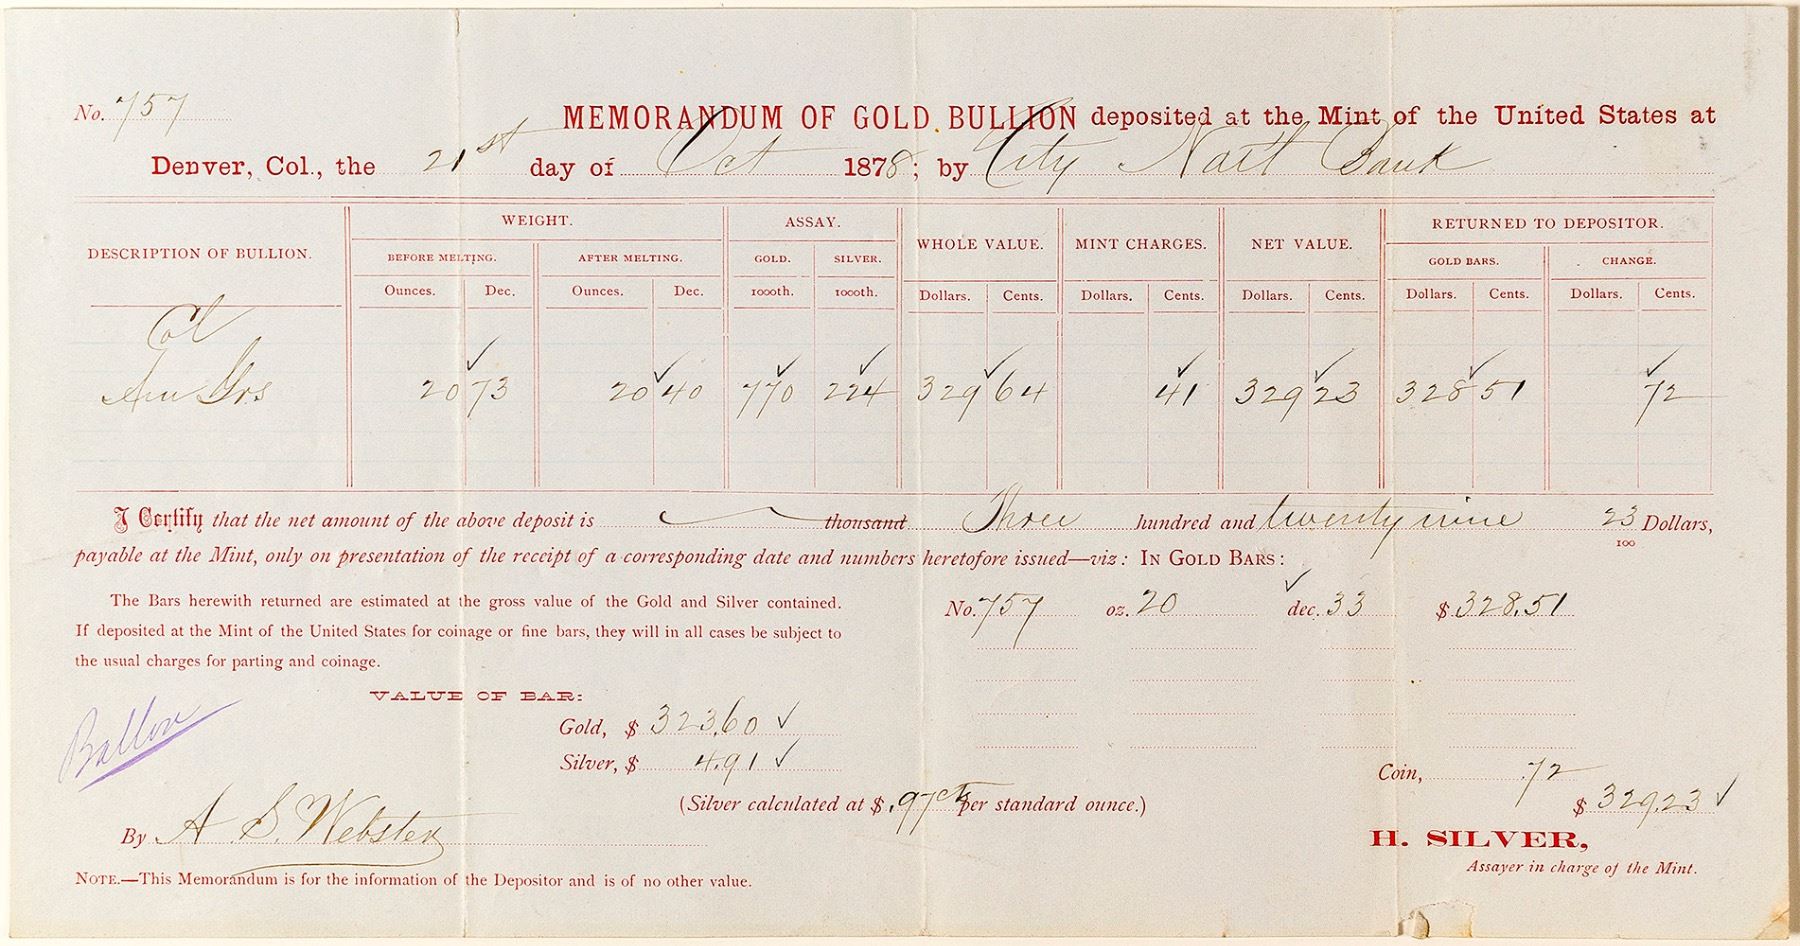 No. 757
MEMORANDUM OF GOLD BULLION deposited at the Mint of the United States at
Denver, Col., the 21st day of Oct 1878; by City Natl Bank
DESCRIPTION OF BULLION.
WEIGHT.
ASSAY.
WHOLE VALUE.
MINT CHARGES.
NET VALUE.
RETURNED TO DEPOSITOR.
BEFORE MELTING.
AFTER MELTING.
GOLD.
SILVER.
GOLD BARS.
CHANGE.
Ounces. Dec. Ounces. Dec. 1000th. 1000th. Dollars. Cents. Dollars. Cents. Dollars. Cents. Dollars. Cents. Dollars. Cents.
Col
20 73 20 40 770 224 329 64 41 329 23 328 51 72
I Certify that the net amount of the above deposit is thousand Three hundred and twenty nine 23/100 Dollars,
payable at the Mint, only on presentation of the receipt of a corresponding date and numbers heretofore issued—viz: IN GOLD BARS:
The Bars herewith returned are estimated at the gross value of the Gold and Silver contained.
If deposited at the Mint of the United States for coinage or fine bars, they will in all cases be subject to
the usual charges for parting and coinage.
No. 757 oz. 20 dec. 33 $ 328.51
VALUE OF BAR:
Gold, $ 323.60
Silver, $ 4.91
(Silver calculated at $ .97cts per standard ounce.)
Coin, .72
$ 329.23
By A. S. Webster
H. SILVER,
Assayer in charge of the Mint.
NOTE.—This Memorandum is for the information of the Depositor and is of no other value.